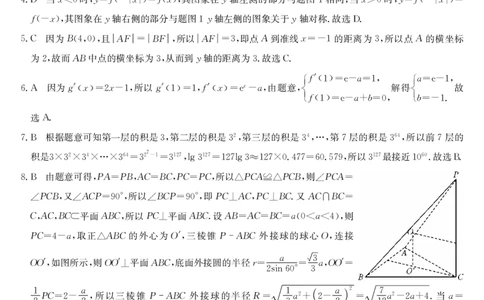 f(−x),其图象在 y 轴右侧的部分与题图 1 y 轴左侧的图象关于 y 轴对称.故选 D.
5.C 因为 B(4,0),且|AF|=|BF|,所以|AF|=3,即点 A 到准线 x=−1 的距离为 3,所以点 A 的横坐标
为 2,故而 AB 中点的横坐标为 3,从而到 y 轴的距离为 3.故选 C.
6.A 因为 g′(x)=2x−1,所以 g′(1)=1,f′(x)=eˣ−a,由题意,{f′(1)=e−a=1, f(1)=e−a+b=0, 解得{a=e−1, b=−1. 故
选 A.
7.B 根据题意可知第一层的积是 3,第二层的积是 3²,第三层的积是 3⁴,…,第 7 层的积是 3⁶⁴,所以前 7 层的
积是3×3²×3⁴×…×3⁶⁴=3^{2⁷−1}=3¹²⁷,lg 3¹²⁷=127lg 3≈127×0.477=60.579,所以 3¹²⁷最接近 10⁶⁰.故选 B.
8.B 由题意可得,PA=PB,AC=BC,PC=PC,所以△PCA≌△PCB,则∠PCA=
∠PCB,又∠ACP=90°,所以∠BCP=90°,即 PC⊥AC,PC⊥BC.又 AC∩BC=
C,AC,BC⊂平面 ABC,所以 PC⊥平面 ABC.设 AB=AC=BC=a(0<a<4),则
PC=4−a,取正△ABC 的外心为 O′,三棱锥 P−ABC 外接球的球心 O,连接
OO′,如图所示,则 OO′⊥平面 ABC,底面外接圆的半径 r=a/(2sin 60°)=√3/3 a,OO′=
1/2 PC=2−a/2,所以三棱锥 P−ABC 外接球的半径 R=√(1/3 a²+(2−a/2)²)=√(7/12 a²−2a+4),当 a=
P
A
O′
B
C